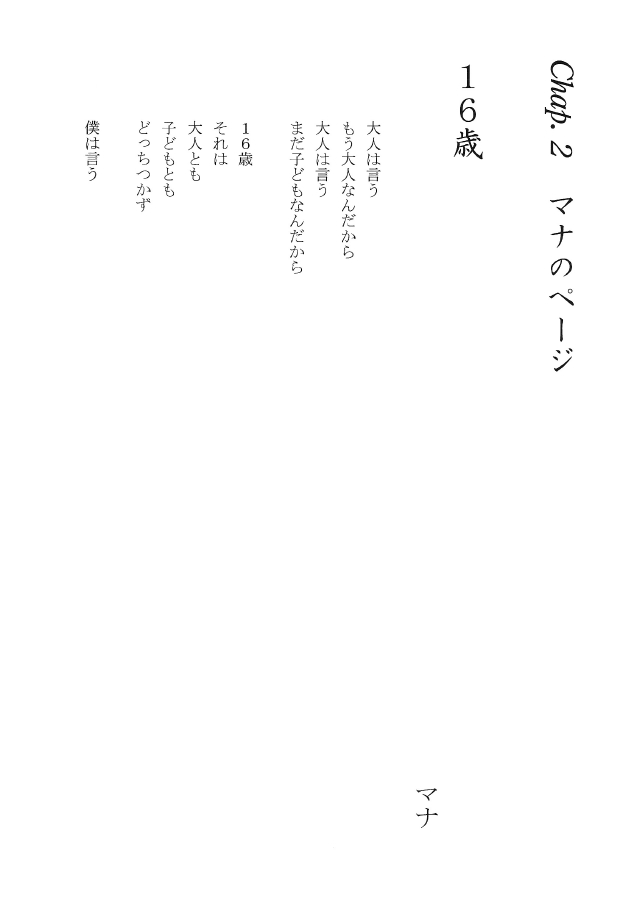 Chap. 2　マナのページ
１６歳
マナ
大人は言う
もう大人なんだから
大人は言う
まだ子どもなんだから
１６歳
それは
大人とも
子どもとも
どっちつかず
僕は言う